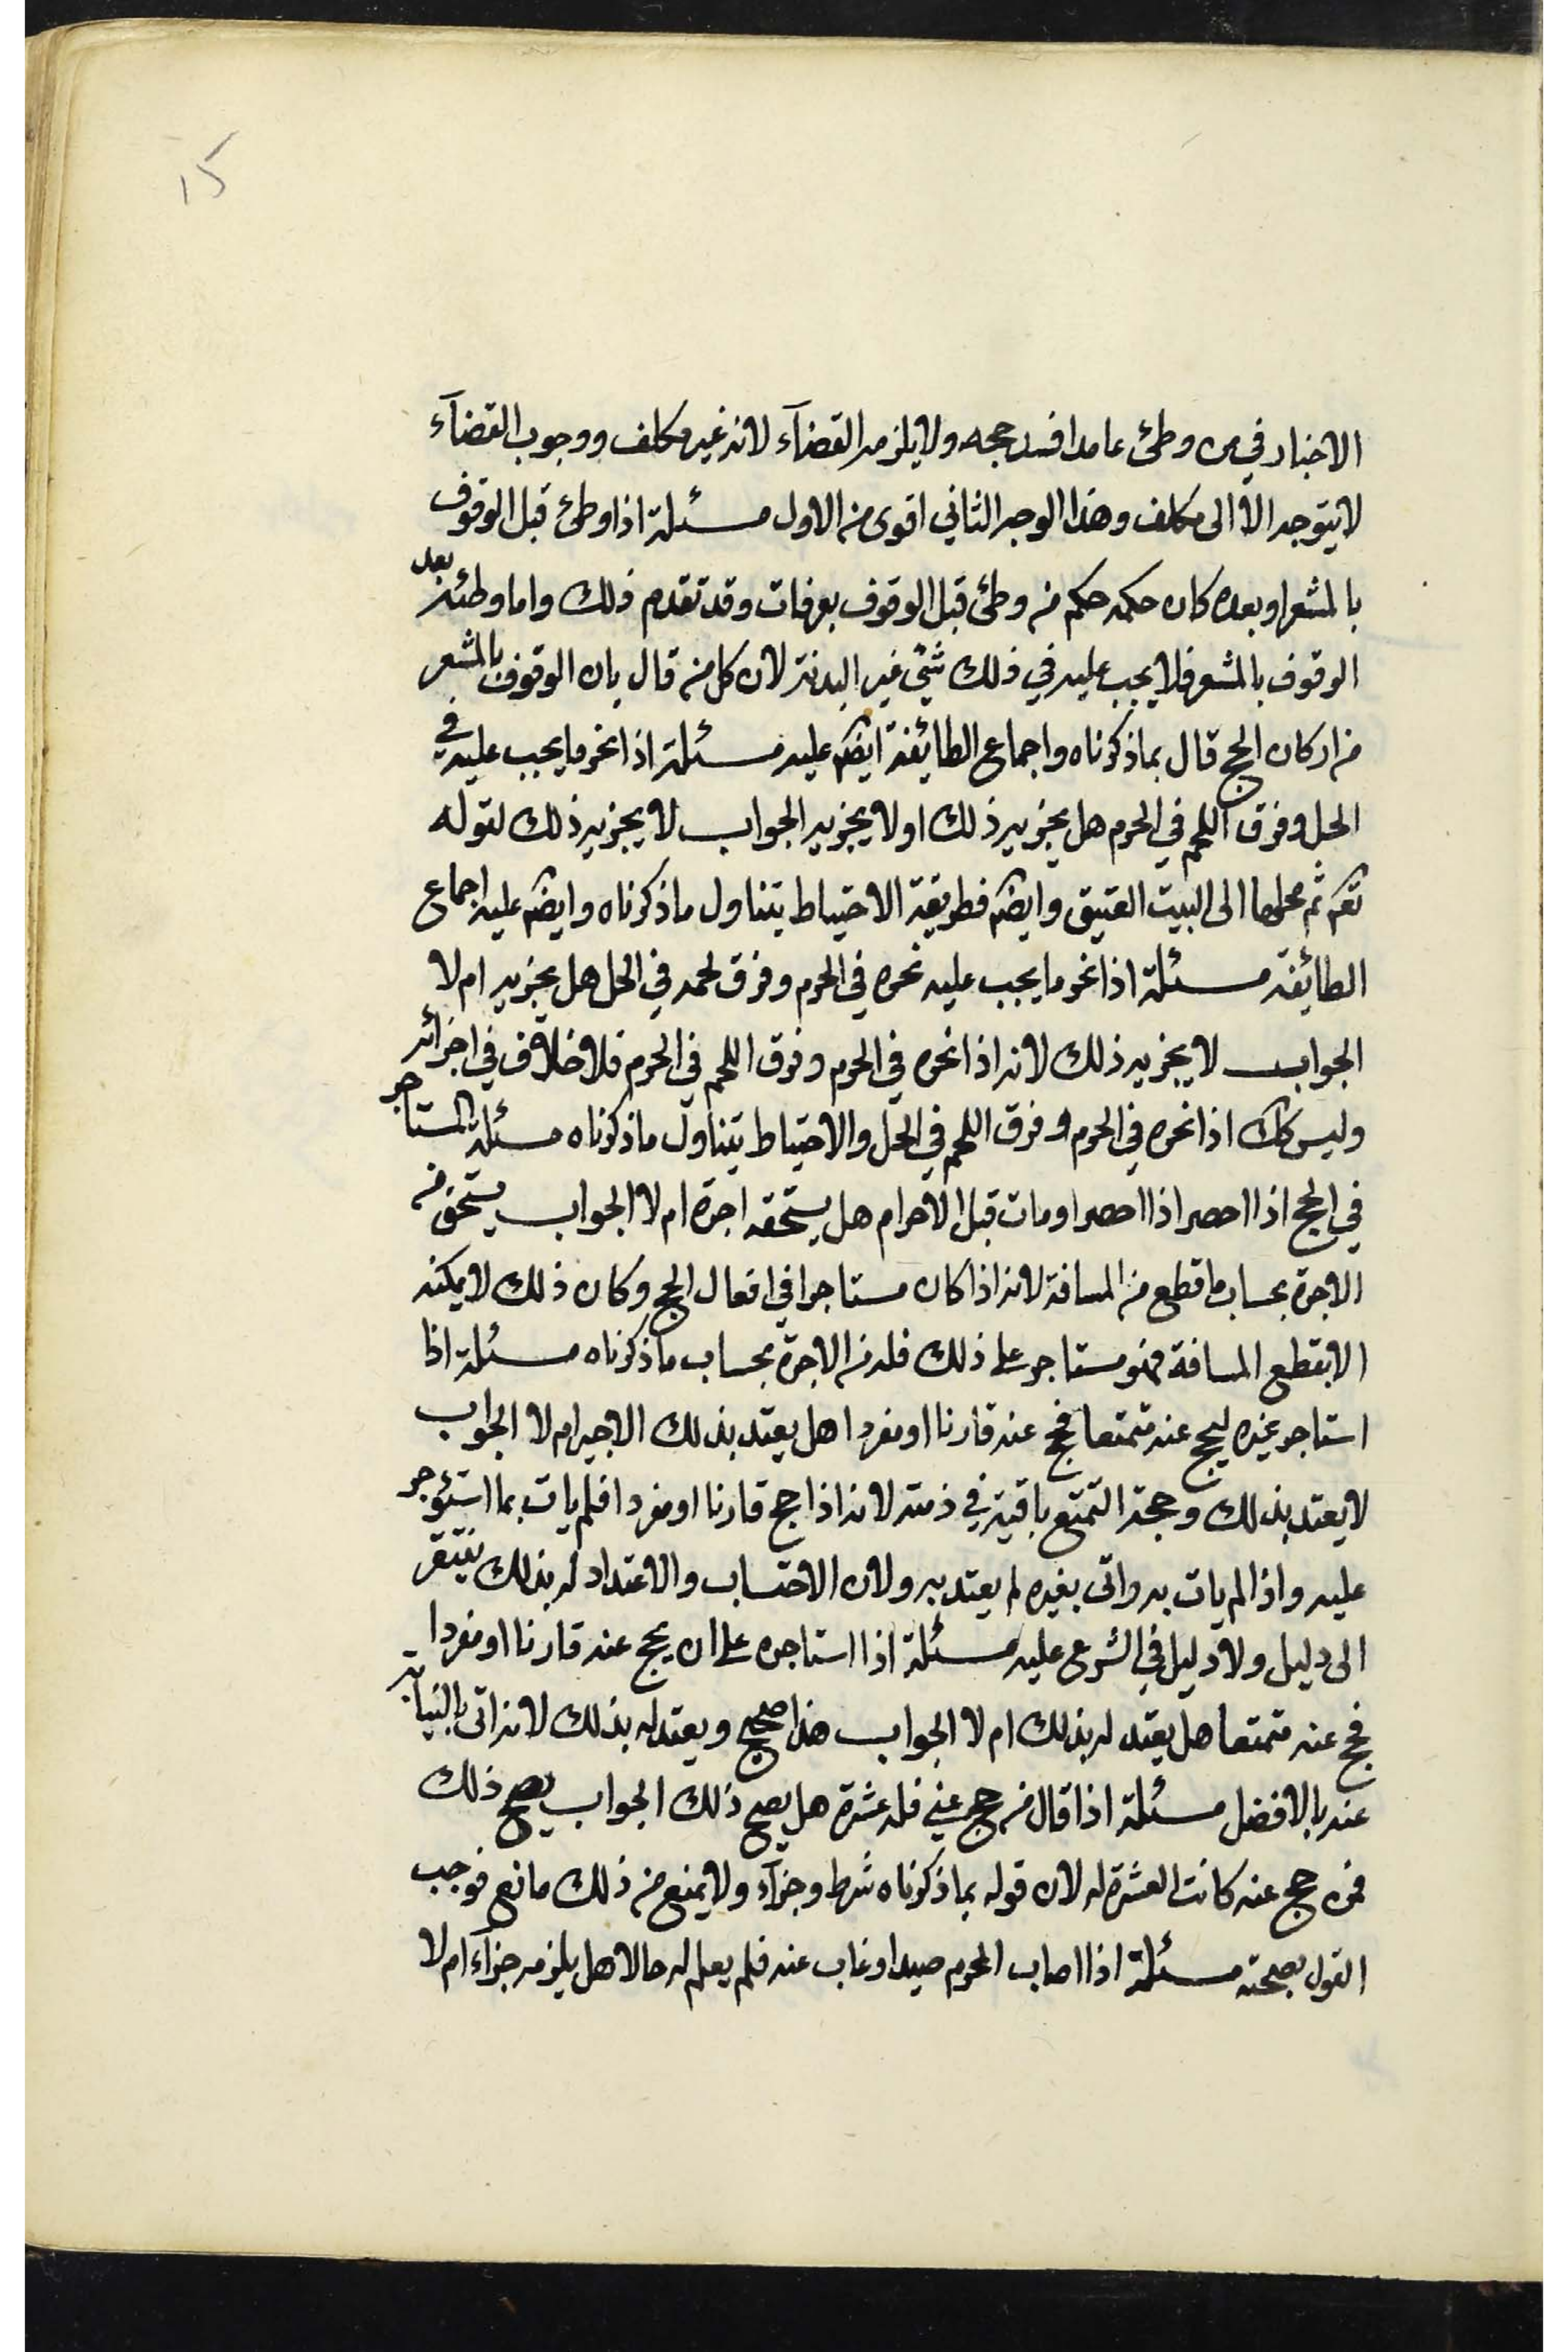 15
الاخبار في من وطئ عامدا افسد حجه ولا يلزمه القضآء لانه غير مكلف ووجوب القضآء
لا يتوجه الا الى مكلف وهذا الوجه الثاني اقوى من الاول مسئلة اذا وطئ قبل الوقوف
بالمشعر او بعده كان حكمه حكم من وطئ قبل الوقوف بعرفات وقد تقدم ذلك واما وطئه بعد
الوقوف بالمشعر فلا يجب عليه في ذلك شئ غير البدنة لان كل من قال بان الوقوف بالمشعر
من اركان الحج قال بما ذكرناه واجماع الطائفة ايضا عليه مسئلة اذا نحر ما يجب عليه في
الحل وفرق اللحم في الحرم هل يجزيه ذلك او لا يجزيه الجواب لا يجزيه ذلك لقوله
تعم ثم محلها الى البيت العتيق وايضا فطريقة الاحتياط يتناول ما ذكرناه وايضا عليه اجماع
الطائفة مسئلة اذا نحر ما يجب عليه نحره في الحرم وفرق لحمه في الحل هل يجزيه ام لا
الجواب لا يجزيه ذلك لانه اذا نحره في الحرم وفرق اللحم في الحرم فلا خلاف في اجزائه
وليس كك اذا نحره في الحرم وفرق اللحم في الحل والاحتياط يتناول ما ذكرناه مسئلة المستاجر
في الحج اذا احصر اذا احصر او مات قبل الاحرام هل يستحقه اجرة ام لا الجواب يستحق من
الاجرة بحساب ما قطع من المسافة لانه اذا كان مستاجرا في افعال الحج وكان ذلك لا يمكنه
الا بقطع المسافة فهو مستاجر على ذلك فله من الاجرة بحساب ما ذكرناه مسئلة اذا
استاجر غيره ليحج عنه متمتعا فحج عنه قارنا او مفردا هل يعتد بذلك الاجير ام لا الجواب
لا يعتد بذلك وحجة التمتع باقية في ذمته لانه اذا حج قارنا او مفردا فلم يات بما استؤجر
عليه واذا لم يات به واتى بغيره لم يعتد به ولان الاحتساب والاعتداد له بذلك يفتقر
الى دليل ولا دليل في الشرع عليه مسئلة اذا استاجره على ان يحج عنه قارنا او مفردا
فحج عنه متمتعا هل يعتد له بذلك ام لا الجواب هذا صحيح ويعتد له بذلك لانه اتى بالنيابة
عنه بالافضل مسئلة اذا قال من حج عني فله عشرة هل يصح ذلك الجواب يصح ذلك
فمن حج عنه كانت العشرة له لان قوله بما ذكرناه شرط وجزآء ولا يمنع من ذلك مانع فوجب
القول بصحته مسئلة اذا اصاب المحرم صيدا وغاب عنه فلم يعلم له حالا هل يلزمه جزآء ام لا